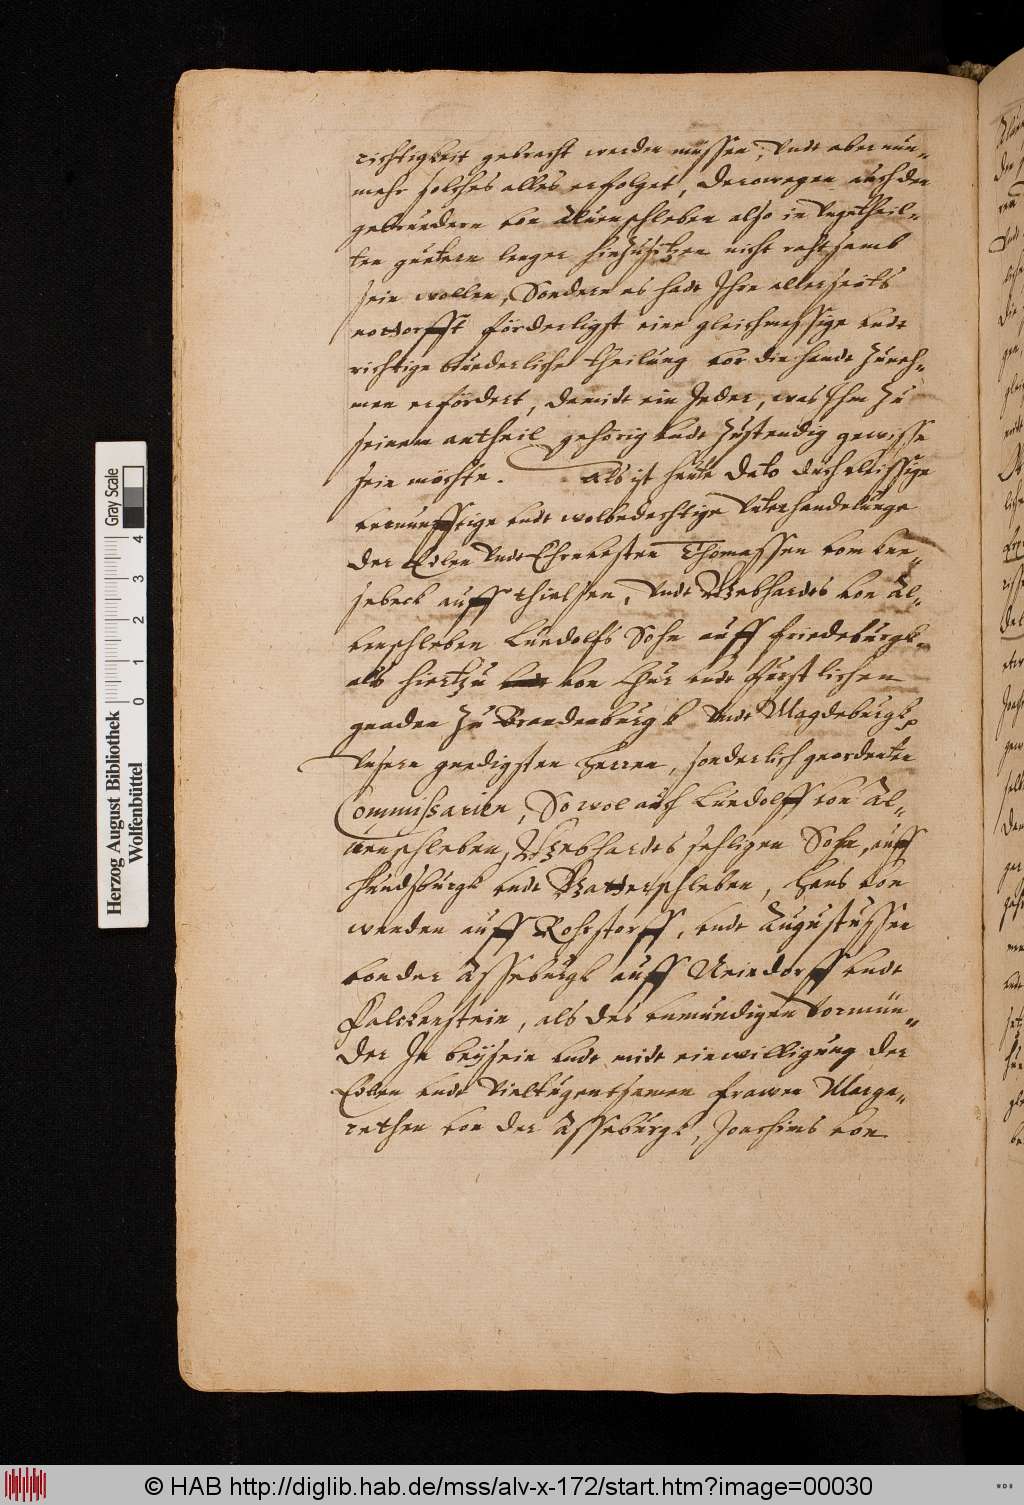 richtigkeit gebracht werden müssen, Undt aber nun„
mehr solches alles erfolget, Derowegen auch den
gebruedern von Aluenschleben also in Ungetheil„
ten guetern lenger hinzusitzen nicht rahtsamb
sein wollen, Sondern es hadt Ihre allerseits
notdorfft förderligst eine gleichmessige vndt
richtige brüederliche theilung vor die handt Zuneh„
men erfördert, damidt ein Jeder, was Ihm Zu
seinem antheil gehörig vndt Zustendig gewisse
sein möchte. Als ist heute dato durch vleissige
vernunfftige vndt wolbedachtige Unterhandelunge
der Edlen Undt Ehrnvesten Thomassen vom Kne„
sebeck auff thielsen, Undt Gebhardts von Al„
uenschleben Luedolfs Sohn auff friedeburgk„
als hiertzu von Chur vndt Fürstlichen
gnaden Zu Brandenburgk Undt Magdeburgk,
Unsern gnedigsten herren, sonderlich geordenten
Commissarien, So wol auch Luedolff von Al„
uenschleben, Gebhardts sehligen Sohn, auff
hundsburgk vndt Gatterschleben, hans von
wenden auff Rohrstorff, vndt Augustussen
von der Asseburgk auff Neindorff vndt
Falckenstein, als des vnmundigen Vormün„
der In beysein vndt midt einwilligung der
Edlen vndt Vieltugentsamen frawen Marga„
rethen von der Asseburgk, Joachims von
Herzog August Bibliothek
Wolfenbüttel
0 1 2 3 4
Gray Scale
© HAB http://diglib.hab.de/mss/alv-x-172/start.htm?image=00030